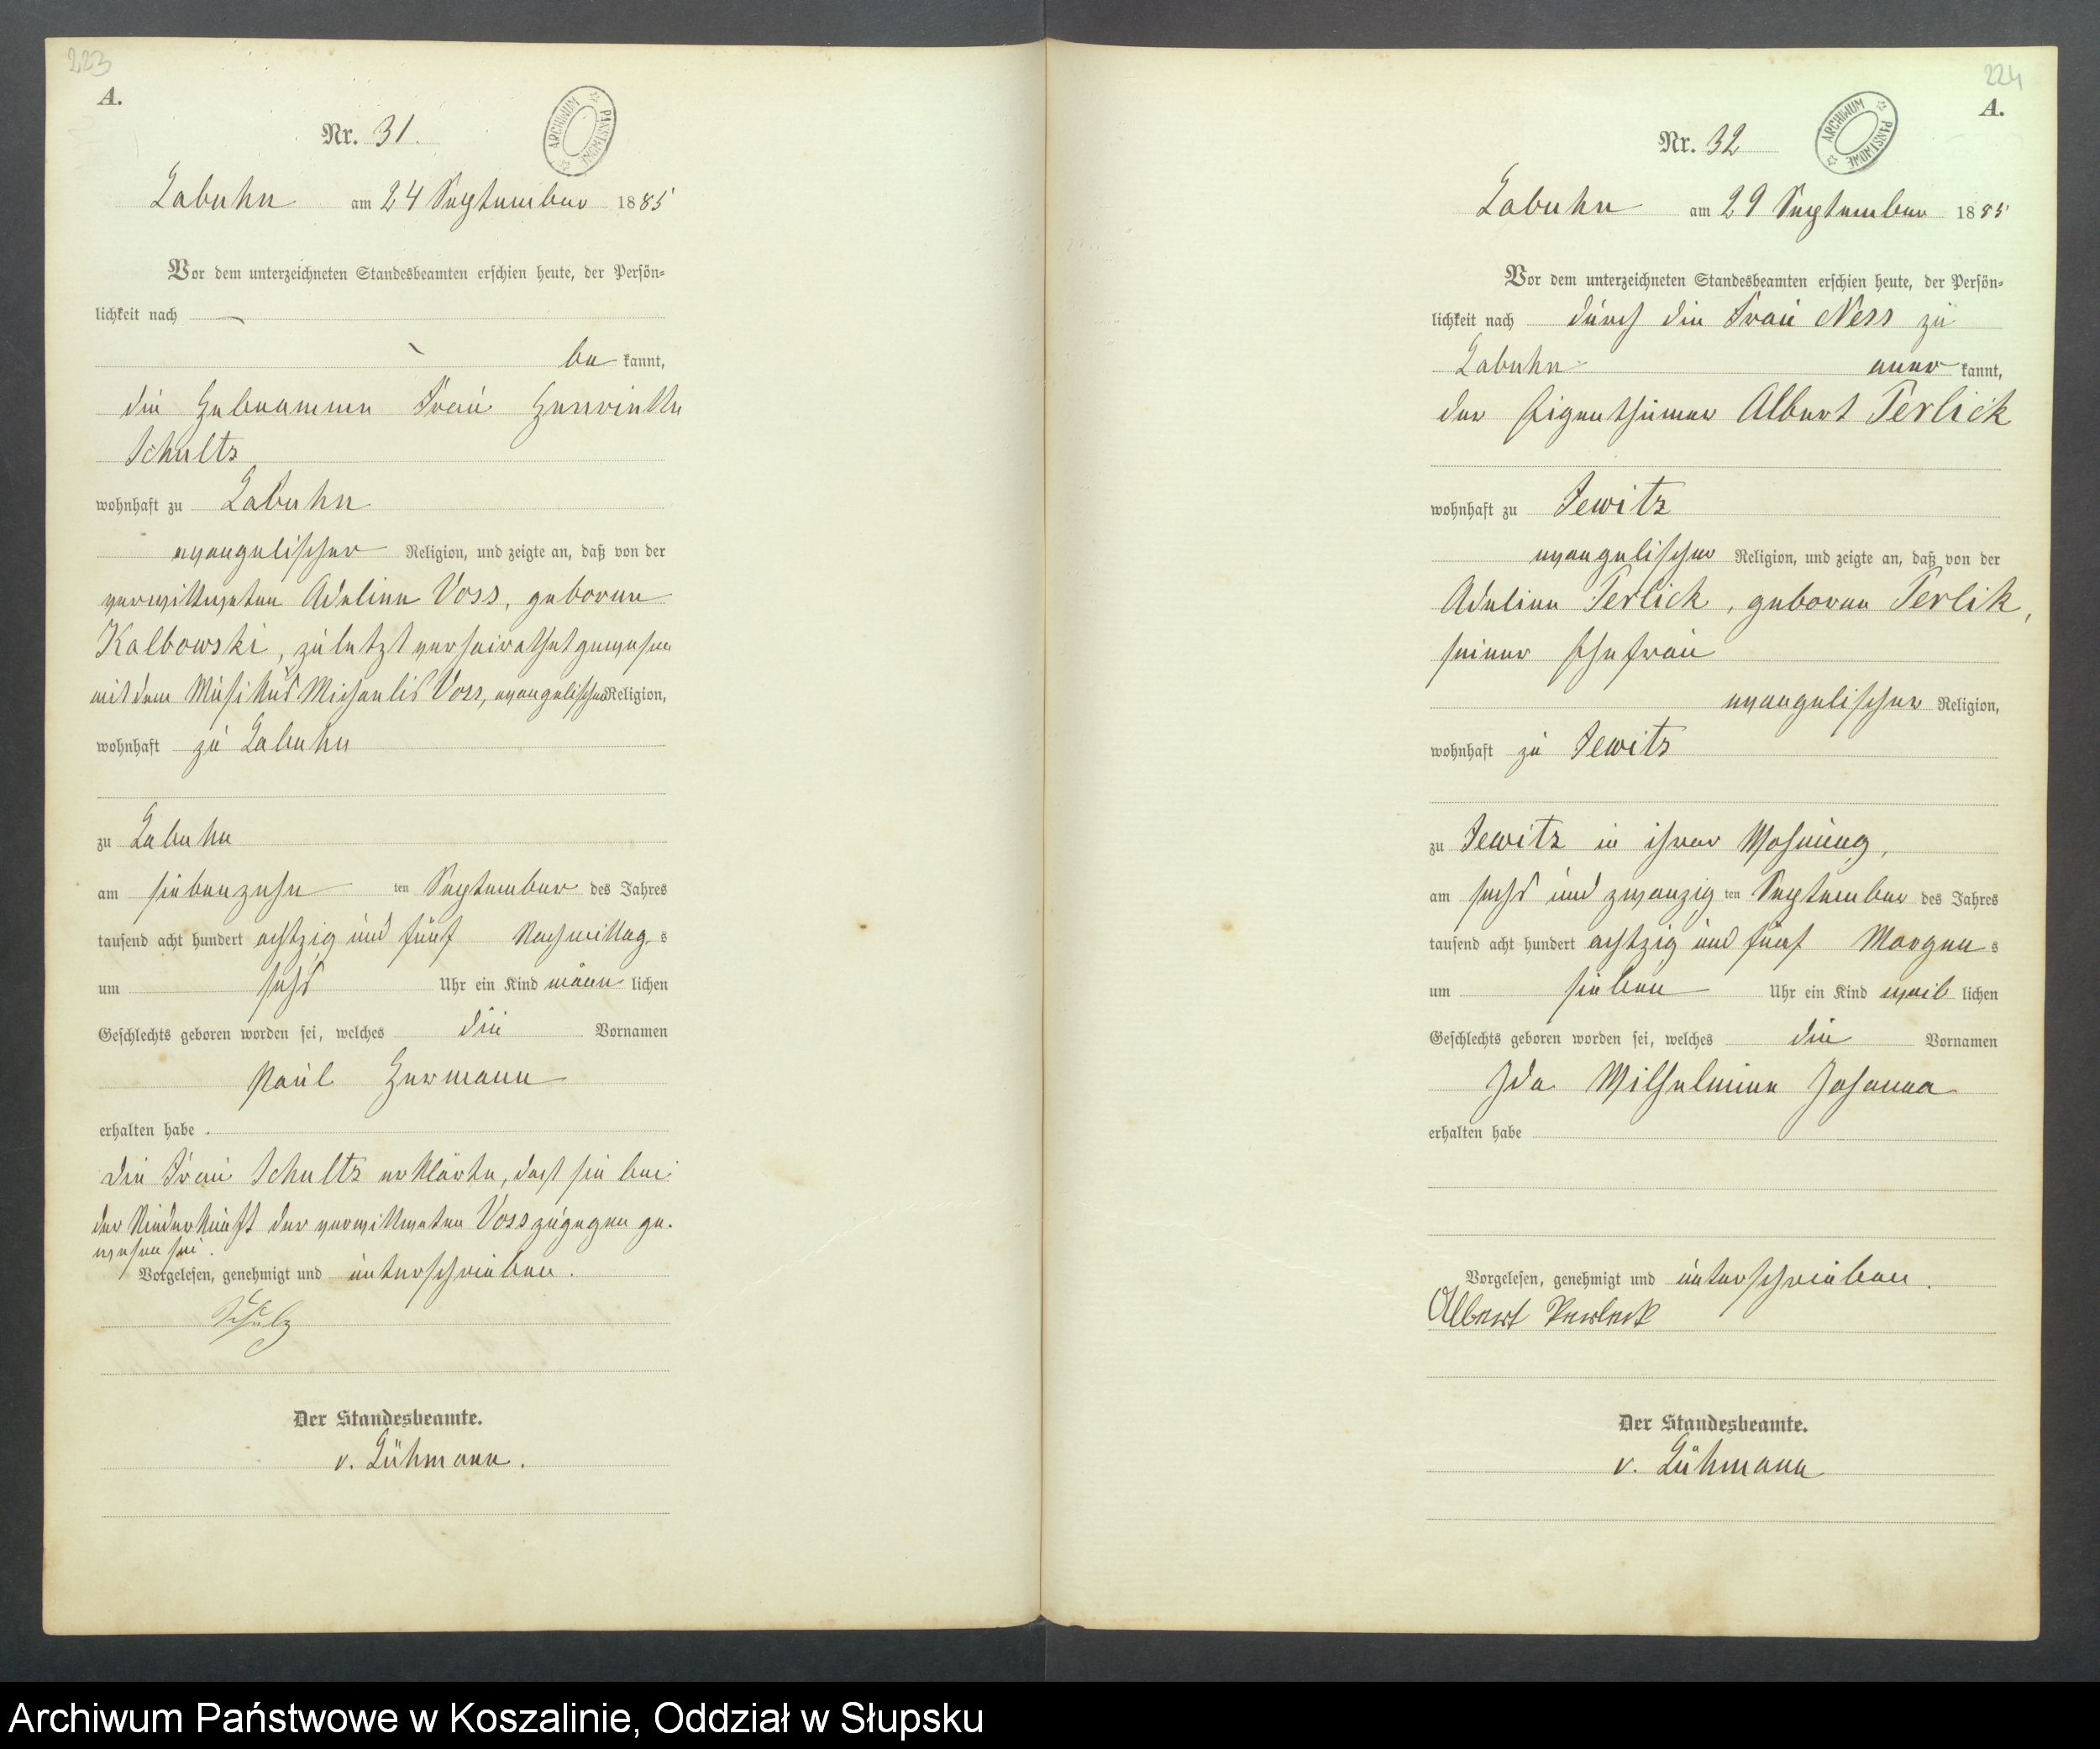 223
A.
Nr. 31.
ARCHIWUM PAŃSTWOWE
Labuhn am 24 September 1885
Vor dem unterzeichneten Standesbeamten erschien heute, der Persön-
lichkeit nach
be kannt,
die Hebeamme Frau Henriette
Schultz
wohnhaft zu Labuhn
evangelischer Religion, und zeigte an, daß von der
verwittweten Adeline Voss, geborene
Kalbowski, zuletzt verheirathet gewesen
mit dem Musikus Michaelis Voss, evangelischer Religion,
wohnhaft zu Labuhn
zu Labuhn
am siebenzehn ten September des Jahres
tausend acht hundert achtzig und fünf Nachmittag s
um sechs Uhr ein Kind männ lichen
Geschlechts geboren worden sei, welches die Vornamen
Paul Hermann
erhalten habe.
Die Frau Schultz erklärte, dass sie bei
der Niederkunft der verwittweten Voss zugegen ge-
wesen sei.
Vorgelesen, genehmigt und unterschrieben.
Schulz
Der Standesbeamte.
v. Lühmann.
224
A.
Nr. 32
ARCHIWUM PAŃSTWOWE
Labuhn am 29 September 1885
Vor dem unterzeichneten Standesbeamten erschien heute, der Persön-
lichkeit nach durch die Frau Ness zu
Labuhn aner kannt,
der Eigenthümer Albert Perlick
wohnhaft zu Jewitz
evangelischer Religion, und zeigte an, daß von der
Adeline Perlick, geborene Perlik,
seiner Ehefrau
evangelischer Religion,
wohnhaft zu Jewitz
zu Jewitz in ihrer Wohnung,
am sechs und zwanzig ten September des Jahres
tausend acht hundert achtzig und fünf Morgen s
um sieben Uhr ein Kind weib lichen
Geschlechts geboren worden sei, welches die Vornamen
Ida Wilhelmine Johanna
erhalten habe
Vorgelesen, genehmigt und unterschrieben.
Albert Perleck
Der Standesbeamte.
v. Lühmann
Archiwum Państwowe w Koszalinie, Oddział w Słupsku